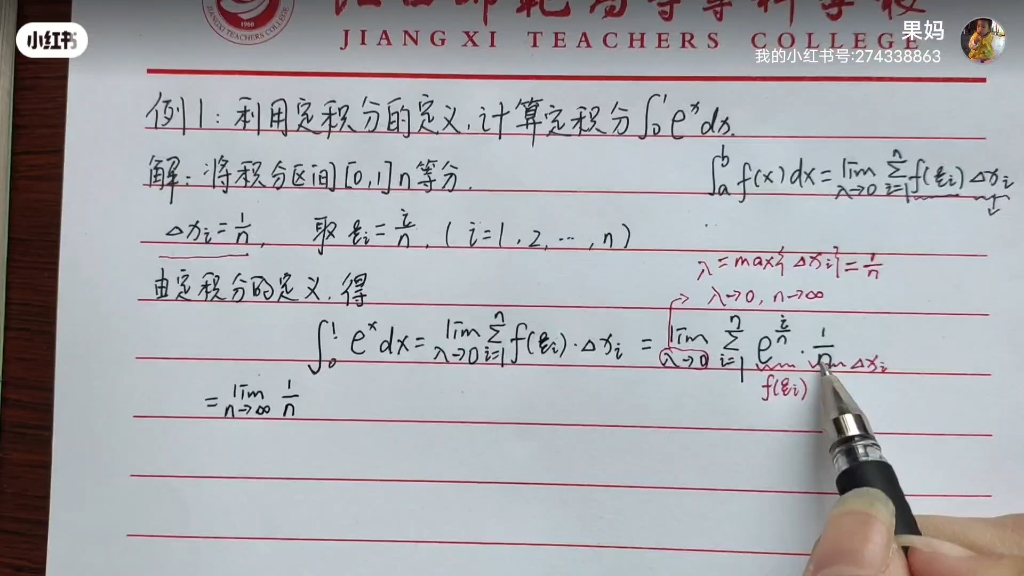 小红书
JIANGXI TEACHERS COLLEGE
1960
JIANG XI TEACHERS COLLEGE
果妈
我的小红书号:274338863
例1:利用定积分的定义,计算定积分∫₀¹eˣdx.
解:将积分区间[0,1]n等分.
∫ₐᵇ f(x)dx=lim λ→0 Σ i=1 n f(ξᵢ)Δxᵢ
Δxᵢ=1/n, 取ξᵢ=i/n, (i=1,2,…,n)
λ=max{Δxᵢ}=1/n
由定积分的定义,得
λ→0, n→∞
∫₀¹ eˣdx=lim λ→0 Σ i=1 n f(ξᵢ)·Δxᵢ = lim λ→0 Σ i=1 n e^(i/n)·1/n
Δxᵢ
f(ξᵢ)
=lim n→∞ 1/n